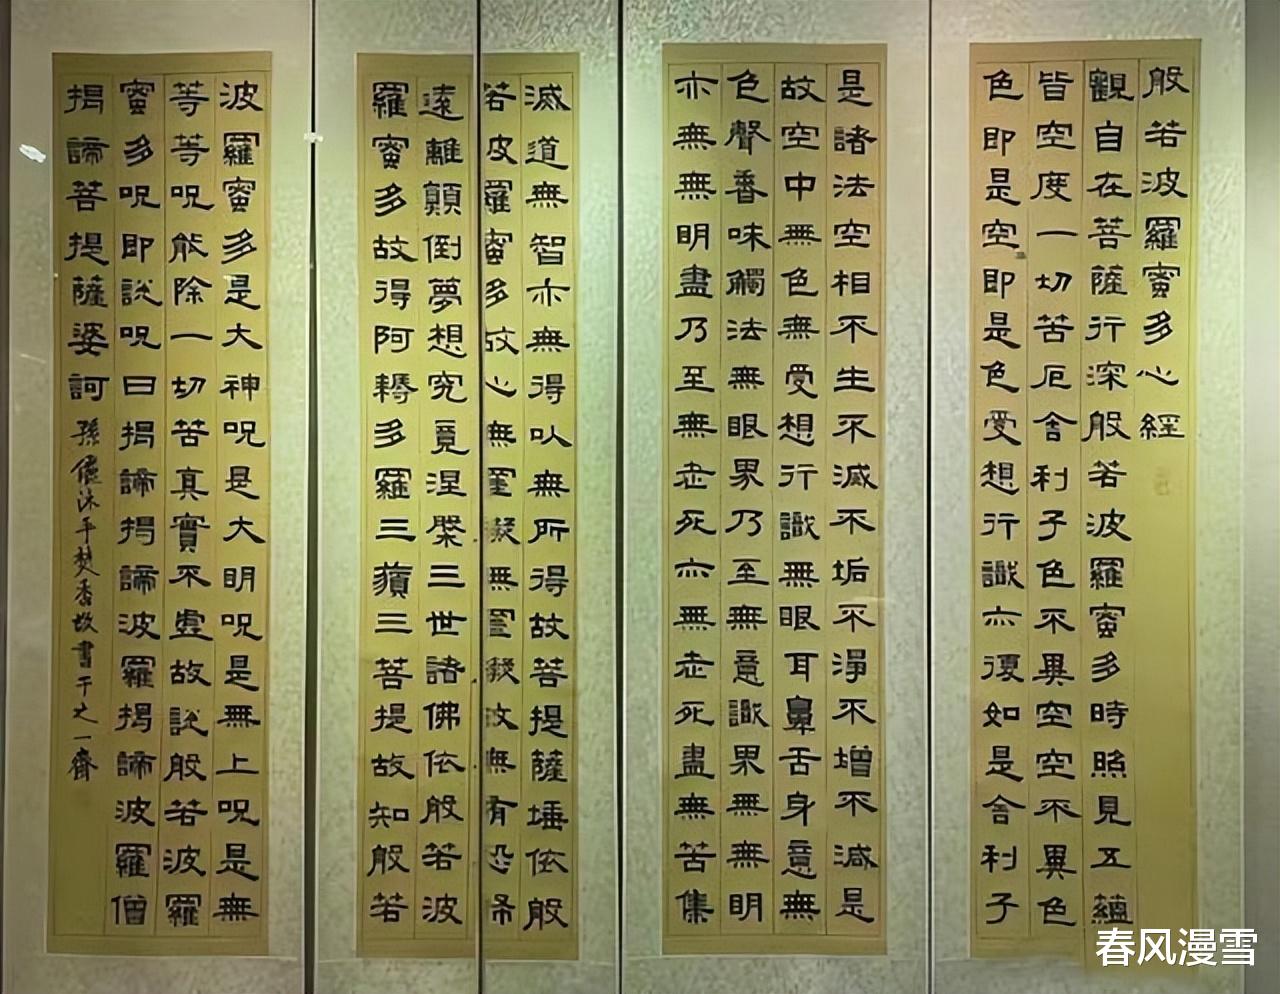 般若波羅蜜多心經
觀自在菩薩行深般若波羅蜜多時照見五蘊
皆空度一切苦厄舍利子色不異空空不異色
色即是空即是色受想行識亦復如是舍利子
是諸法空相不生不滅不垢不淨不增不減是
故空中無色無受想行識無眼耳鼻舌身意無
色聲香味觸法無眼界乃至無意識界無無明
亦無無明盡乃至無老死亦無老死盡無苦集
滅道無智亦無得以無所得故菩提薩埵依般
若波羅蜜多故心無罣礙無罣礙故無有恐怖
遠離顛倒夢想究竟涅槃三世諸佛依般若波
羅蜜多故得阿耨多羅三藐三菩提故知般若
波羅蜜多是大神呪是大明呪是無上呪是無
等等呪能除一切苦真實不虛故說般若波羅
蜜多呪即說呪曰揭諦揭諦波羅揭諦波羅僧
揭諦菩提薩婆訶 孫儷沐手焚香敬書于之一齋
春风漫雪